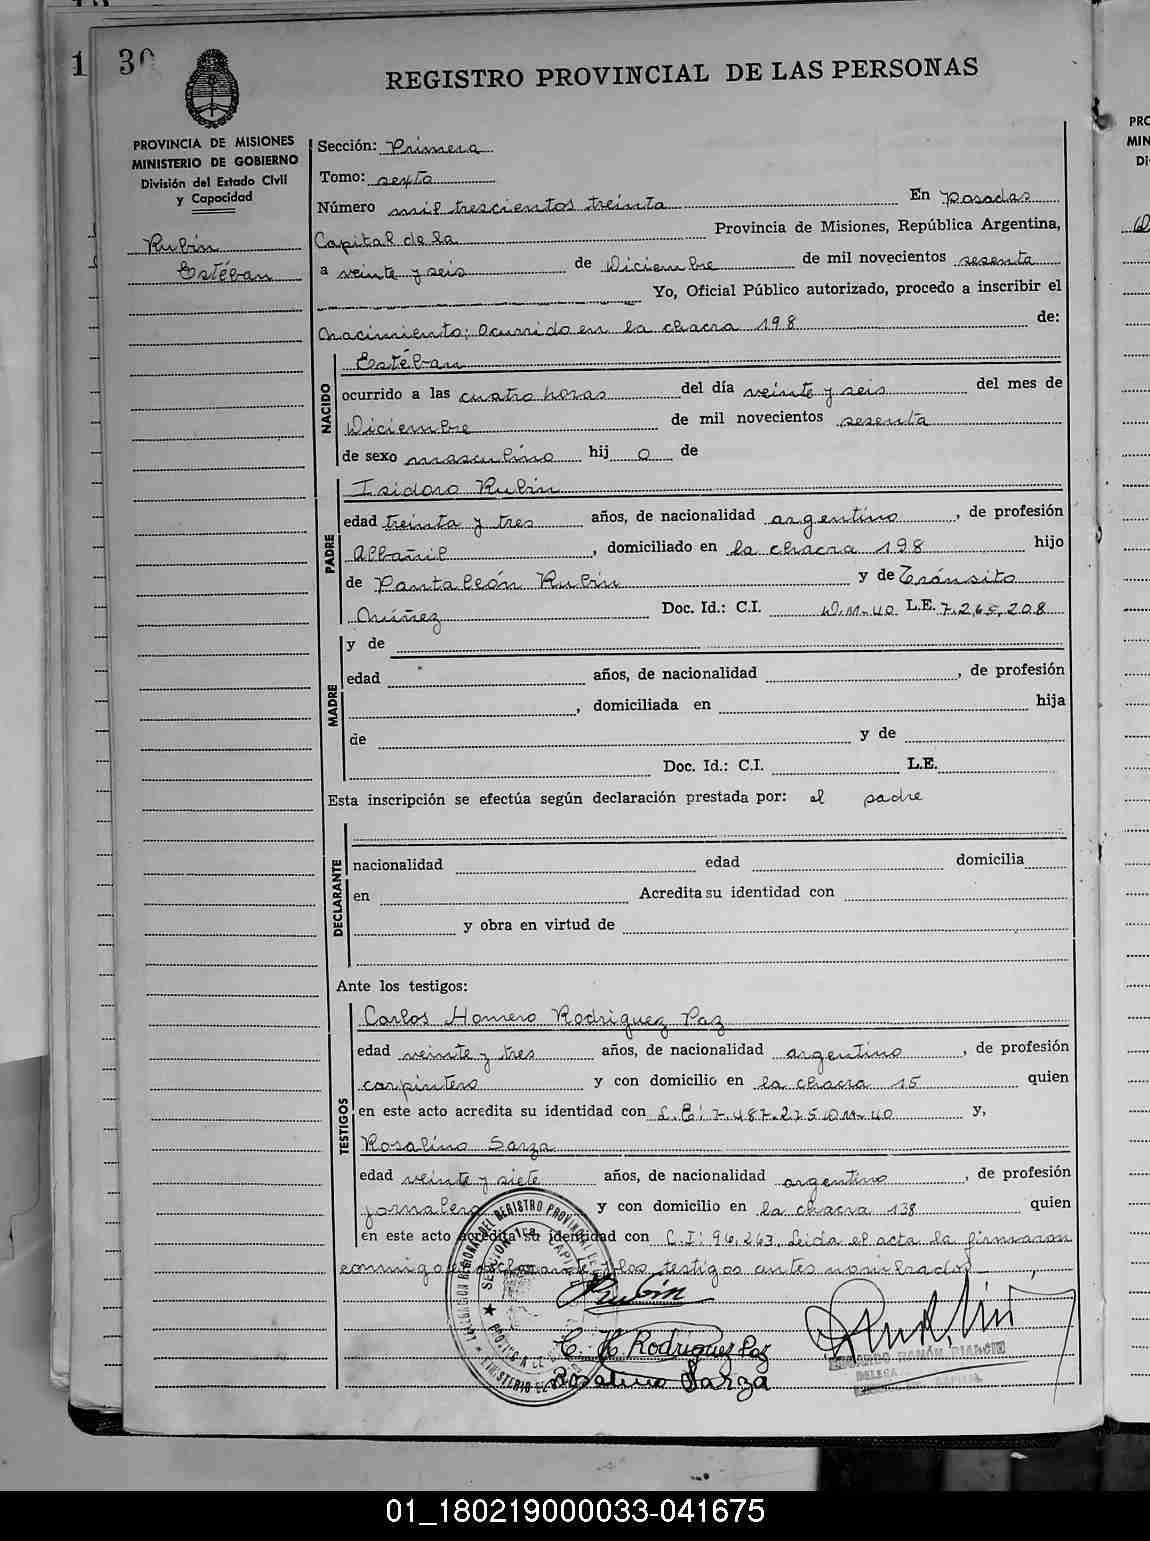 1 30
REGISTRO PROVINCIAL DE LAS PERSONAS
PROVINCIA DE MISIONES
MINISTERIO DE GOBIERNO
División del Estado Civil
y Capacidad
Rubin
Estéban
Sección: Primera
Tomo: sexto
Número mil trescientos treinta En Posadas
Capital de la Provincia de Misiones, República Argentina,
a veinte y seis de Diciembre de mil novecientos sesenta
Yo, Oficial Público autorizado, procedo a inscribir el
Nacimiento; Ocurrido en la chacra 198 de:
NACIDO
Estéban
ocurrido a las cuatro horas del día veinte y seis del mes de
Diciembre de mil novecientos sesenta
de sexo masculino hij o de
PADRE
Isidoro Rubin
edad treinta y tres años, de nacionalidad argentino, de profesión
Albañil, domiciliado en la chacra 198 hijo
de Pantaleón Rubin y de Tránsito
Núñez Doc. Id.: C.I. D.M.40 L.E. 7.265.208
MADRE
y de
edad años, de nacionalidad , de profesión
, domiciliada en hija
de y de
Doc. Id.: C.I. L.E.
Esta inscripción se efectúa según declaración prestada por: el padre
DECLARANTE
nacionalidad edad domicilia
en Acredita su identidad con
y obra en virtud de
Ante los testigos:
TESTIGOS
Carlos Homero Rodriguez Paz
edad veinte y tres años, de nacionalidad argentino, de profesión
carpintero y con domicilio en la chacra 15 quien
en este acto acredita su identidad con L.E: 7.487.275 D.M.40 y,
Rosalino Sarza
edad veinte y siete años, de nacionalidad argentino, de profesión
jornalero y con domicilio en la chacra 138 quien
en este acto acredita su identidad con C.I: 96.263. Leida el acta la firmaron
conmigo el declarante y los testigos antes nombrados
Rubin
C. H. Rodriguez Paz
Rosalino Sarza
PRO
MIN
Di
01_180219000033-041675